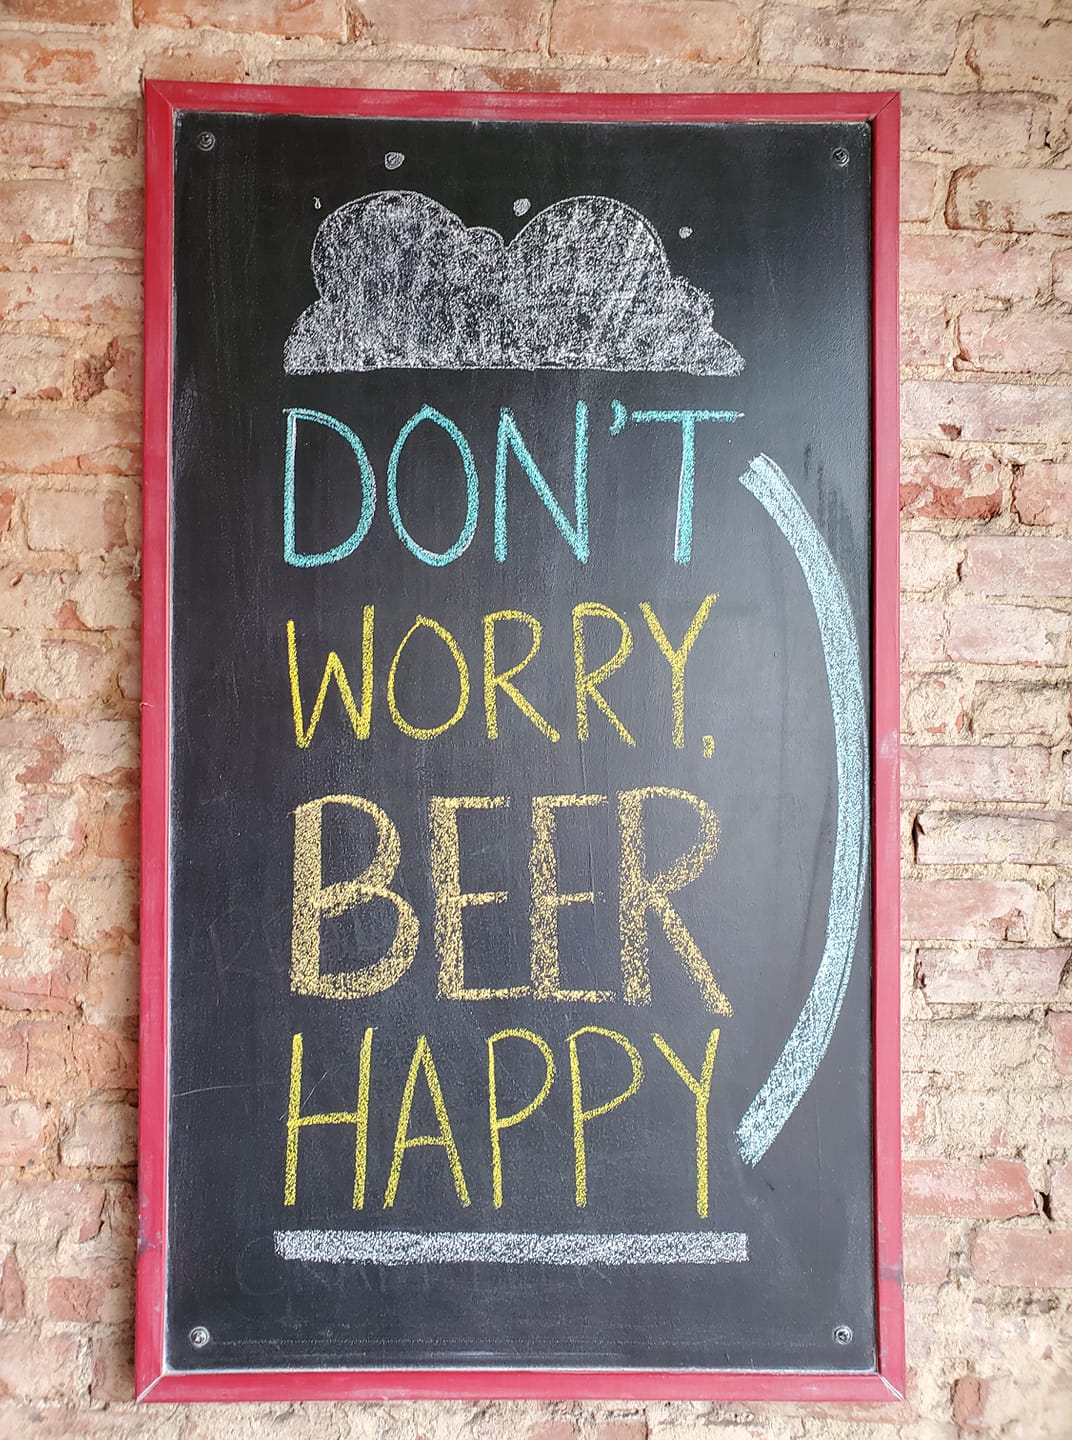 DON'T
WORRY,
BEER
HAPPY